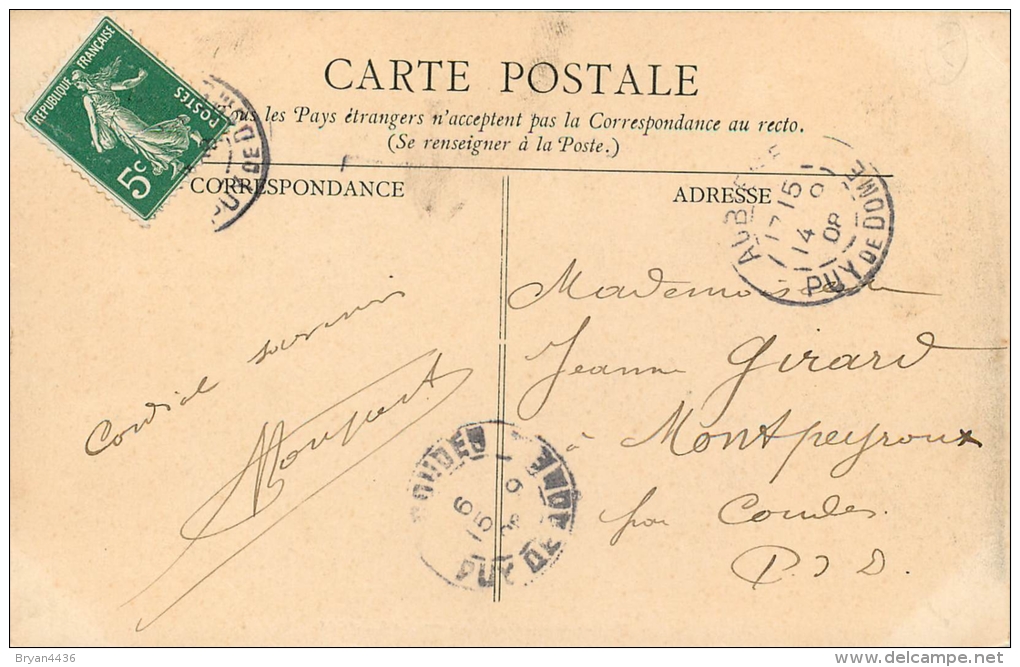 RÉPUBLIQUE FRANÇAISE
POSTES
5c
CARTE POSTALE
Tous les Pays étrangers n'acceptent pas la Correspondance au recto.
(Se renseigner à la Poste.)
CORRESPONDANCE
ADRESSE
PUY DE DOME
17 15
14 9
08
PUY DE DOME
Mademoiselle
Jeanne Girard
à Montpeyroux
par Coudes
P. D D.
Cordial souvenir
COUDES
6
15 9
08
PUY DE DOME
Bryan4436
www.delcampe.net